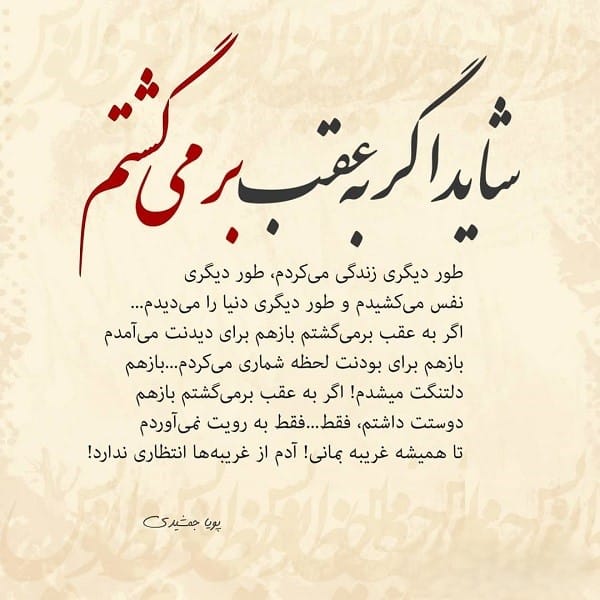 شاید اگر به عقب برمی‌گشتم
طور دیگری زندگی می‌کردم، طور دیگری
نفس می‌کشیدم و طور دیگری دنیا را می‌دیدم...
اگر به عقب برمی‌گشتم بازهم برای دیدنت می‌آمدم
بازهم برای بودنت لحظه شماری می‌کردم...بازهم
دلتنگت میشدم! اگر به عقب برمی‌گشتم بازهم
دوستت داشتم، فقط...فقط به رویت نمی‌آوردم
تا همیشه غریبه بمانی! آدم از غریبه‌ها انتظاری ندارد!
پویا جمشیدی